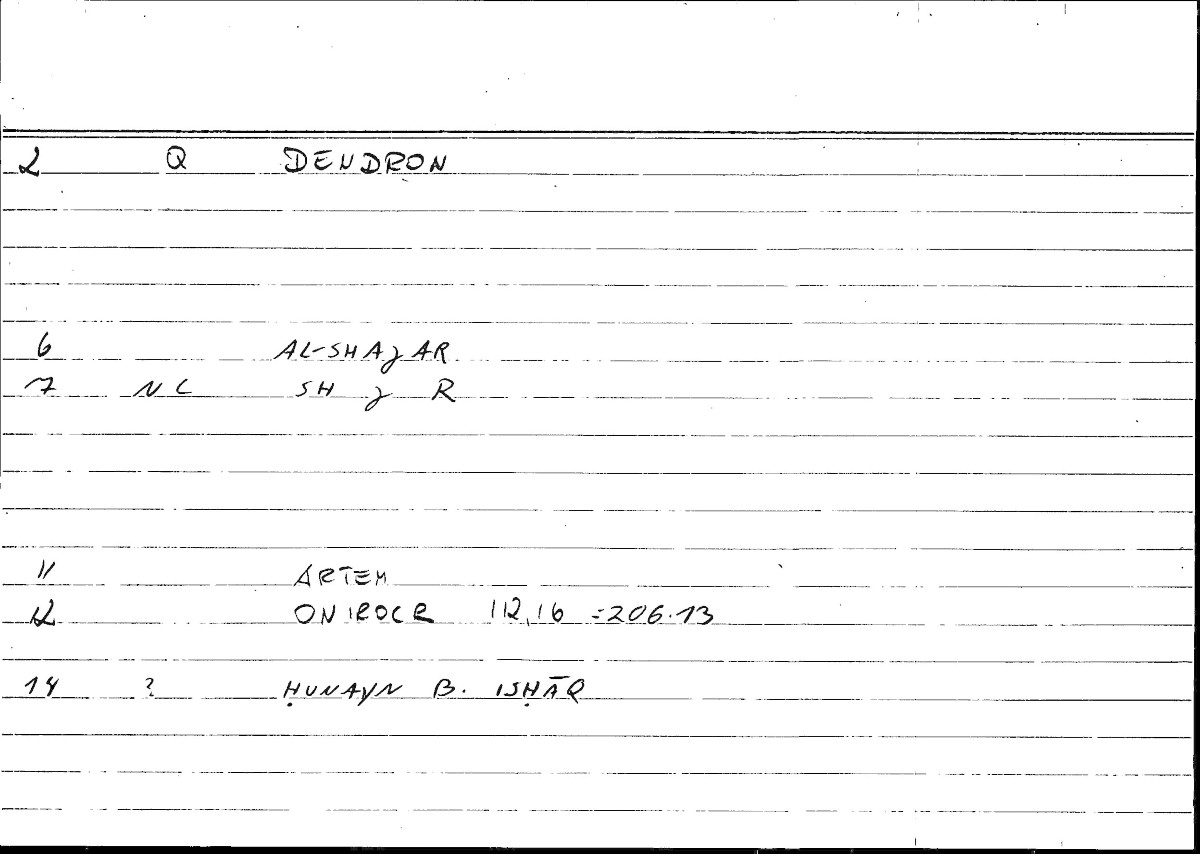 2 Q DENDRON
6 AL-SHAJAR
7 NC SH J R
11 ARTEM
12 ONIROCR 112,16 =206.13
14 ? ḤUNAYN B. ISḤĀQ